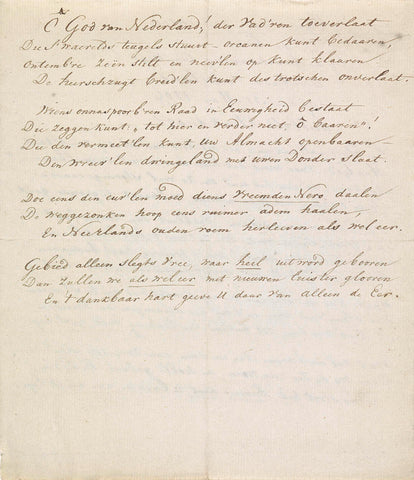 Ô God van Nederland! der Vad'ren toeverlaat
Die 's waerelds teugels stuurt - orcanen kunt bedaaren,
Ontembre zeën stilt en nev'len op kunt klaaren
De heerschzugt breid'len kunt des trotschen onverlaat.
Wiens onnaspoorb'ren Raad in Eeuwigheid bestaat
Die zeggen kunt, „tot hier en verder niet, ô baaren"!
Die den vermeet'len kunt, Uw Almacht openbaaren -
Den wreev'len dwingeland met uwen Donder slaat.
Doe eens den eur'len moed diens Vreemden Nero daalen
De weggezonken hoop eens ruimer adem haalen,
En Neerlands ouden roem herleeven als wel eer.
Gebied alleen slegts Vree, waar heil uit word gebooren
Dan zullen we als wel eer met nieuwen luister glooren
En 't dankbaar hart geeve U daar van alleen de Eer.